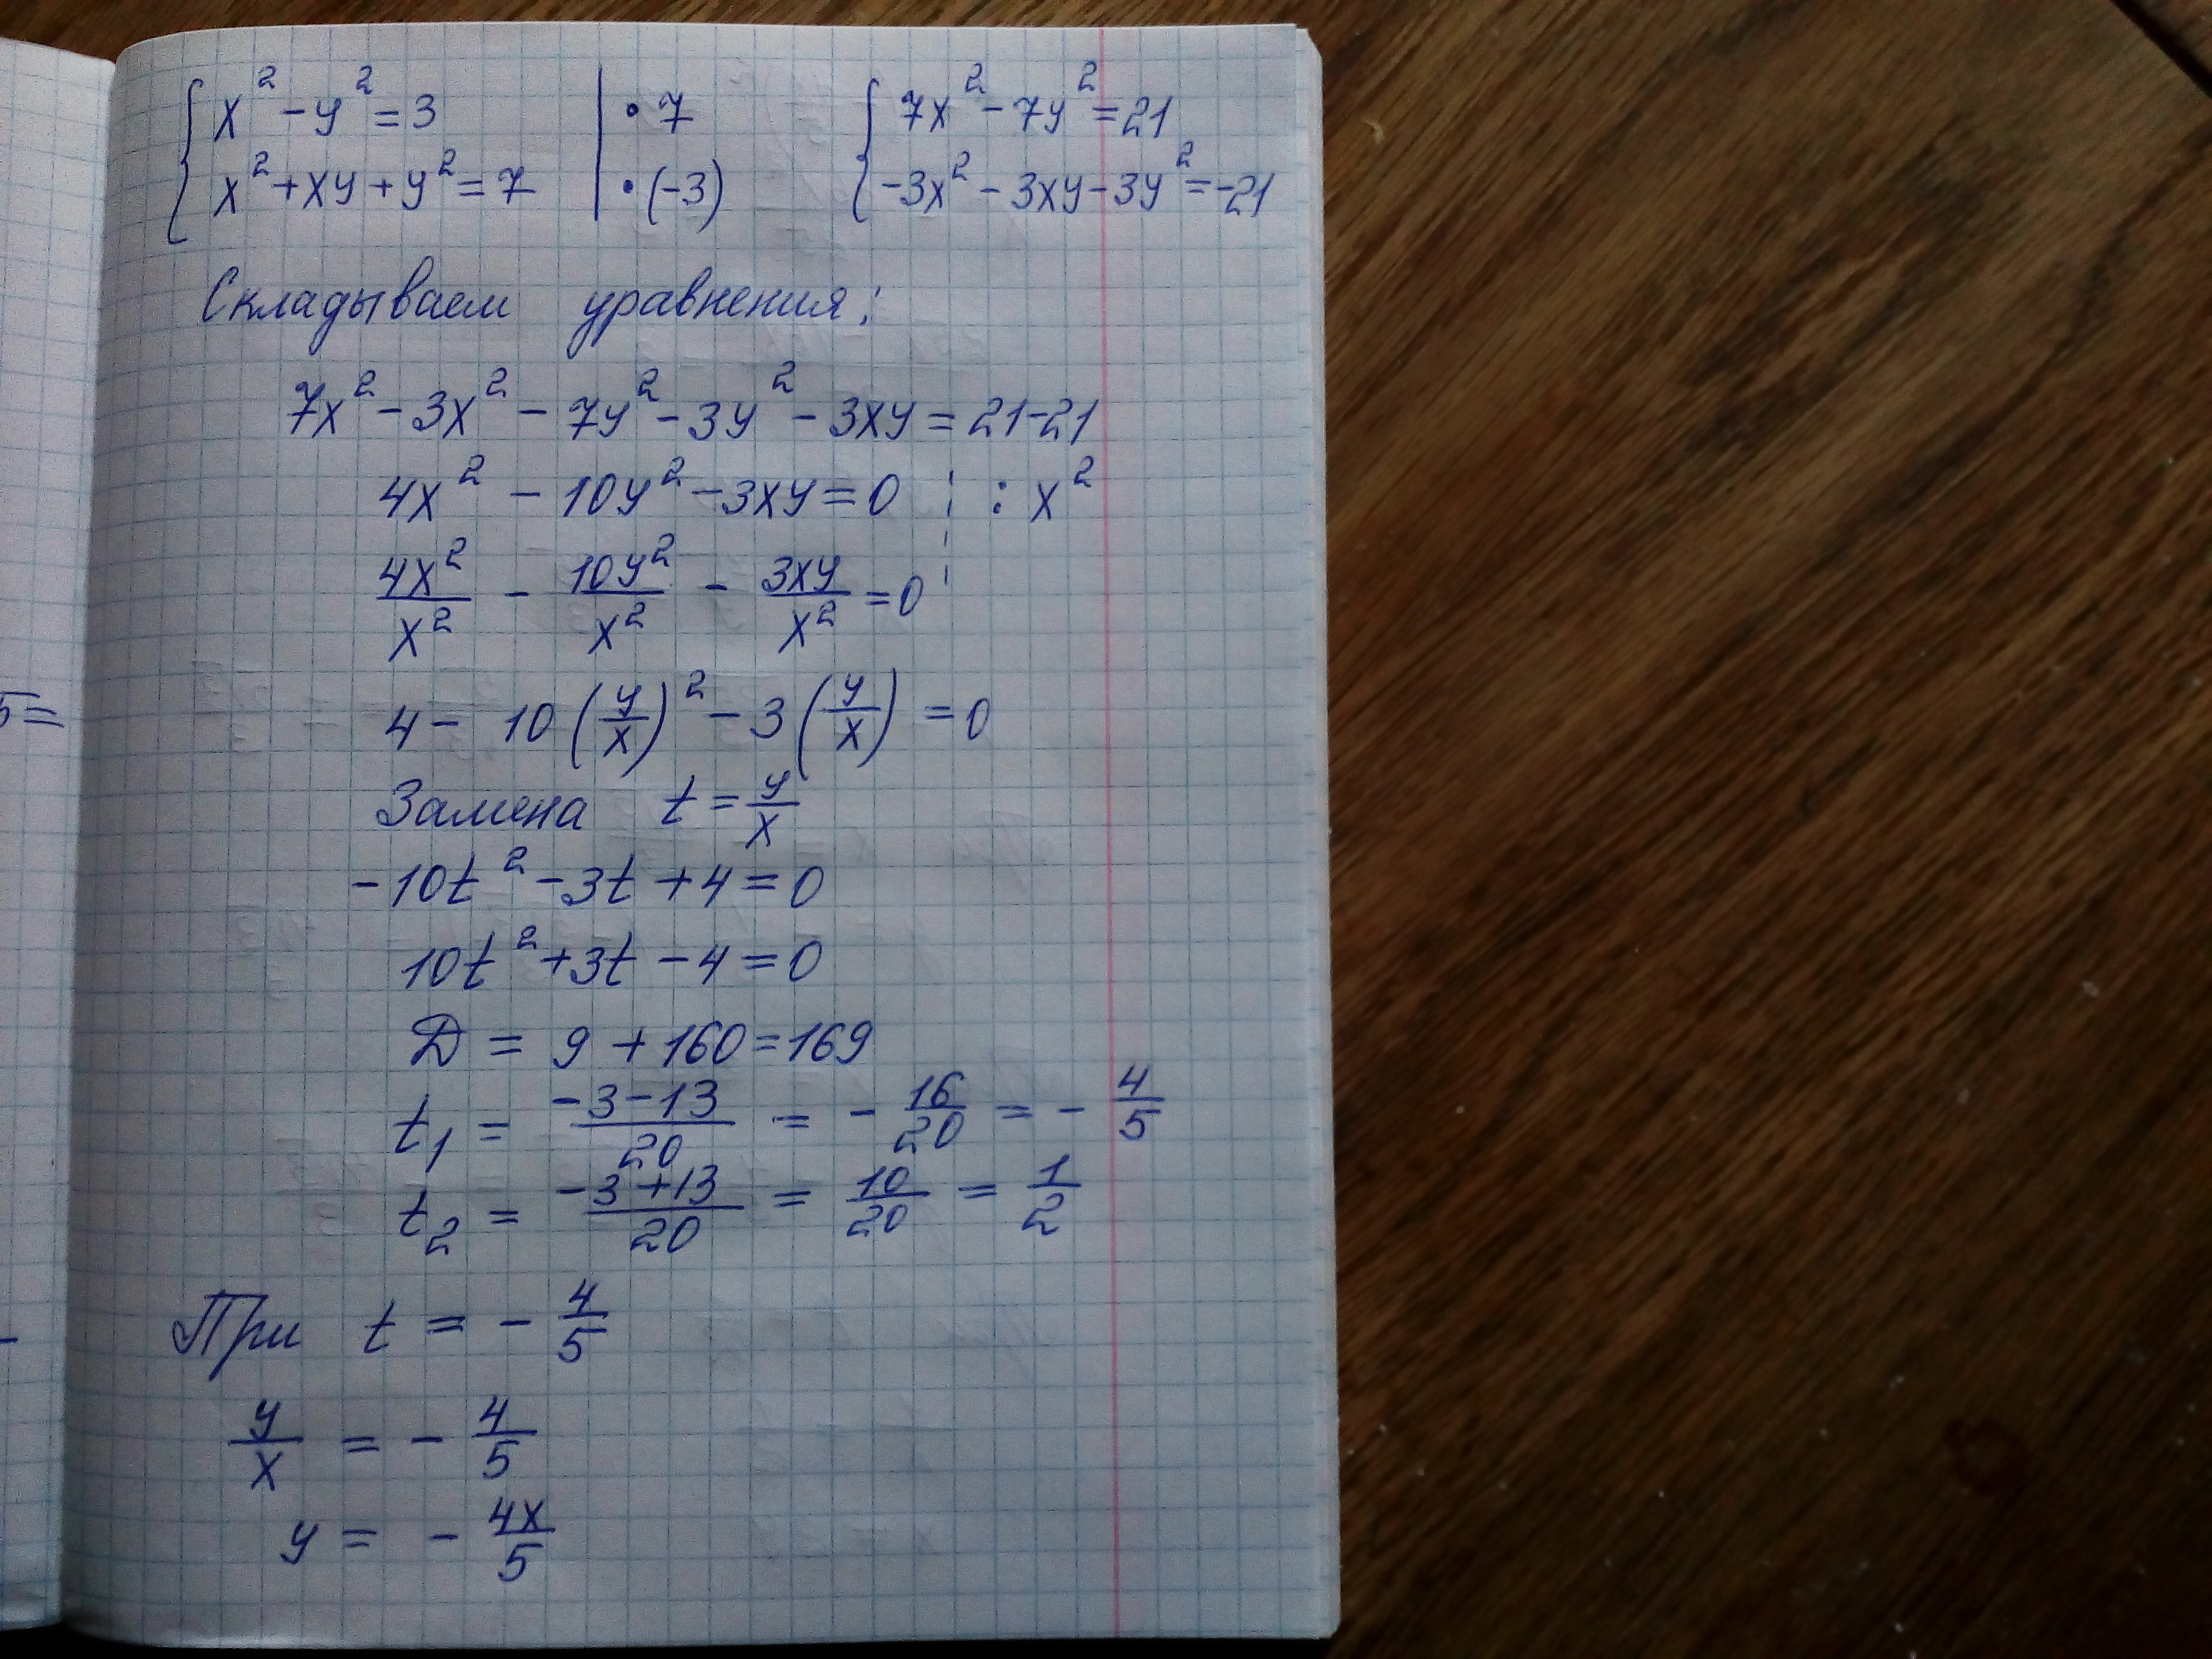 { x² - y² = 3 | · 7 { 7x² - 7y² = 21
x² + xy + y² = 7 | · (-3) -3x² - 3xy - 3y² = -21
Складываем уравнения:
7x² - 3x² - 7y² - 3y² - 3xy = 21 - 21
4x² - 10y² - 3xy = 0 | : x²
4x²/x² - 10y²/x² - 3xy/x² = 0
5=
4 - 10(y/x)² - 3(y/x) = 0
Замена t = y/x
-10t² - 3t + 4 = 0
10t² + 3t - 4 = 0
D = 9 + 160 = 169
t₁ = (-3-13)/20 = - 16/20 = - 4/5
t₂ = (-3+13)/20 = 10/20 = 1/2
При t = - 4/5
y/x = - 4/5
y = - 4x/5